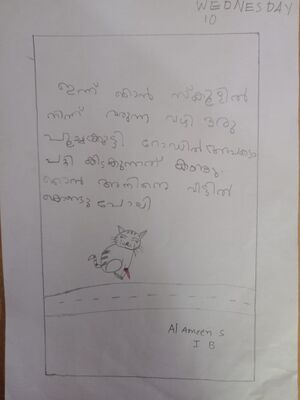 WEDNESDAY
10
ഇന്ന് ഞാൻ സ്കൂളിൽ
നിന്ന് വരുന്ന വഴി ഒരു
പൂച്ചക്കുട്ടി റോഡിൽ അപകടം
പറ്റി കിടക്കുന്നത് കണ്ടു
ഞാൻ അതിനെ വീട്ടിൽ
കൊണ്ടു പോയി
Al Ameen S
I B